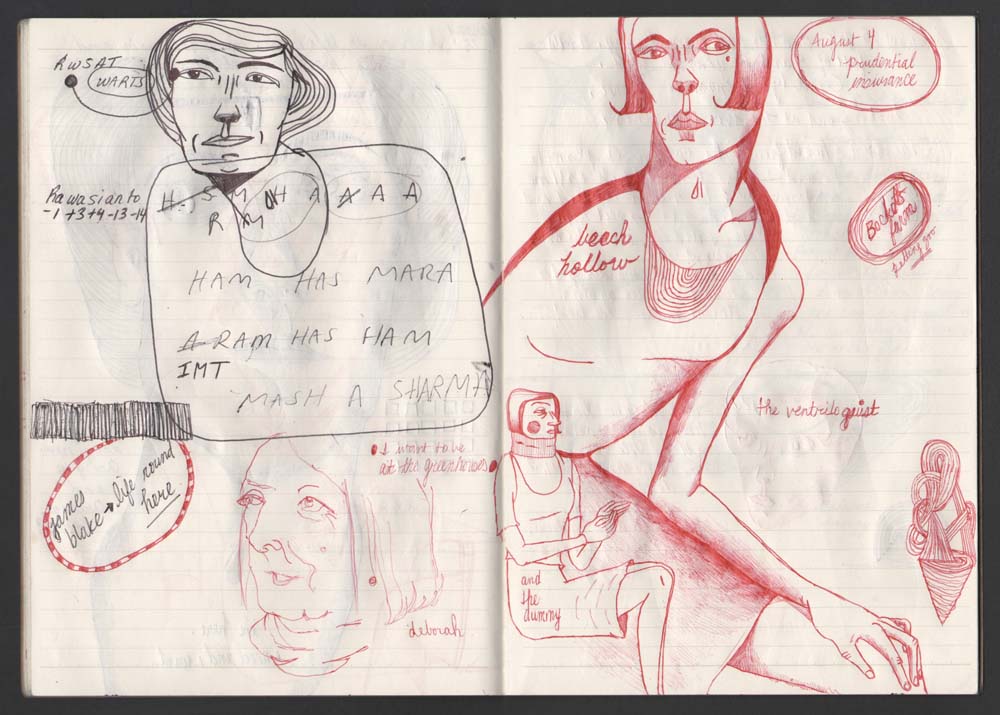 RWSAT
WARTS
Rawasianto
-1 +3+4-13-14
H S M H A A A A
R M
HAM HAS MARA
A RAM HAS HAM
IMT
MASH A SHARMA
james
blake → life round
here
I want to be
at the greenhouses
deborah
August 4
prudential
insurance
beech
hollow
farm
petting zoo
the ventriloquist
and
the
dummy